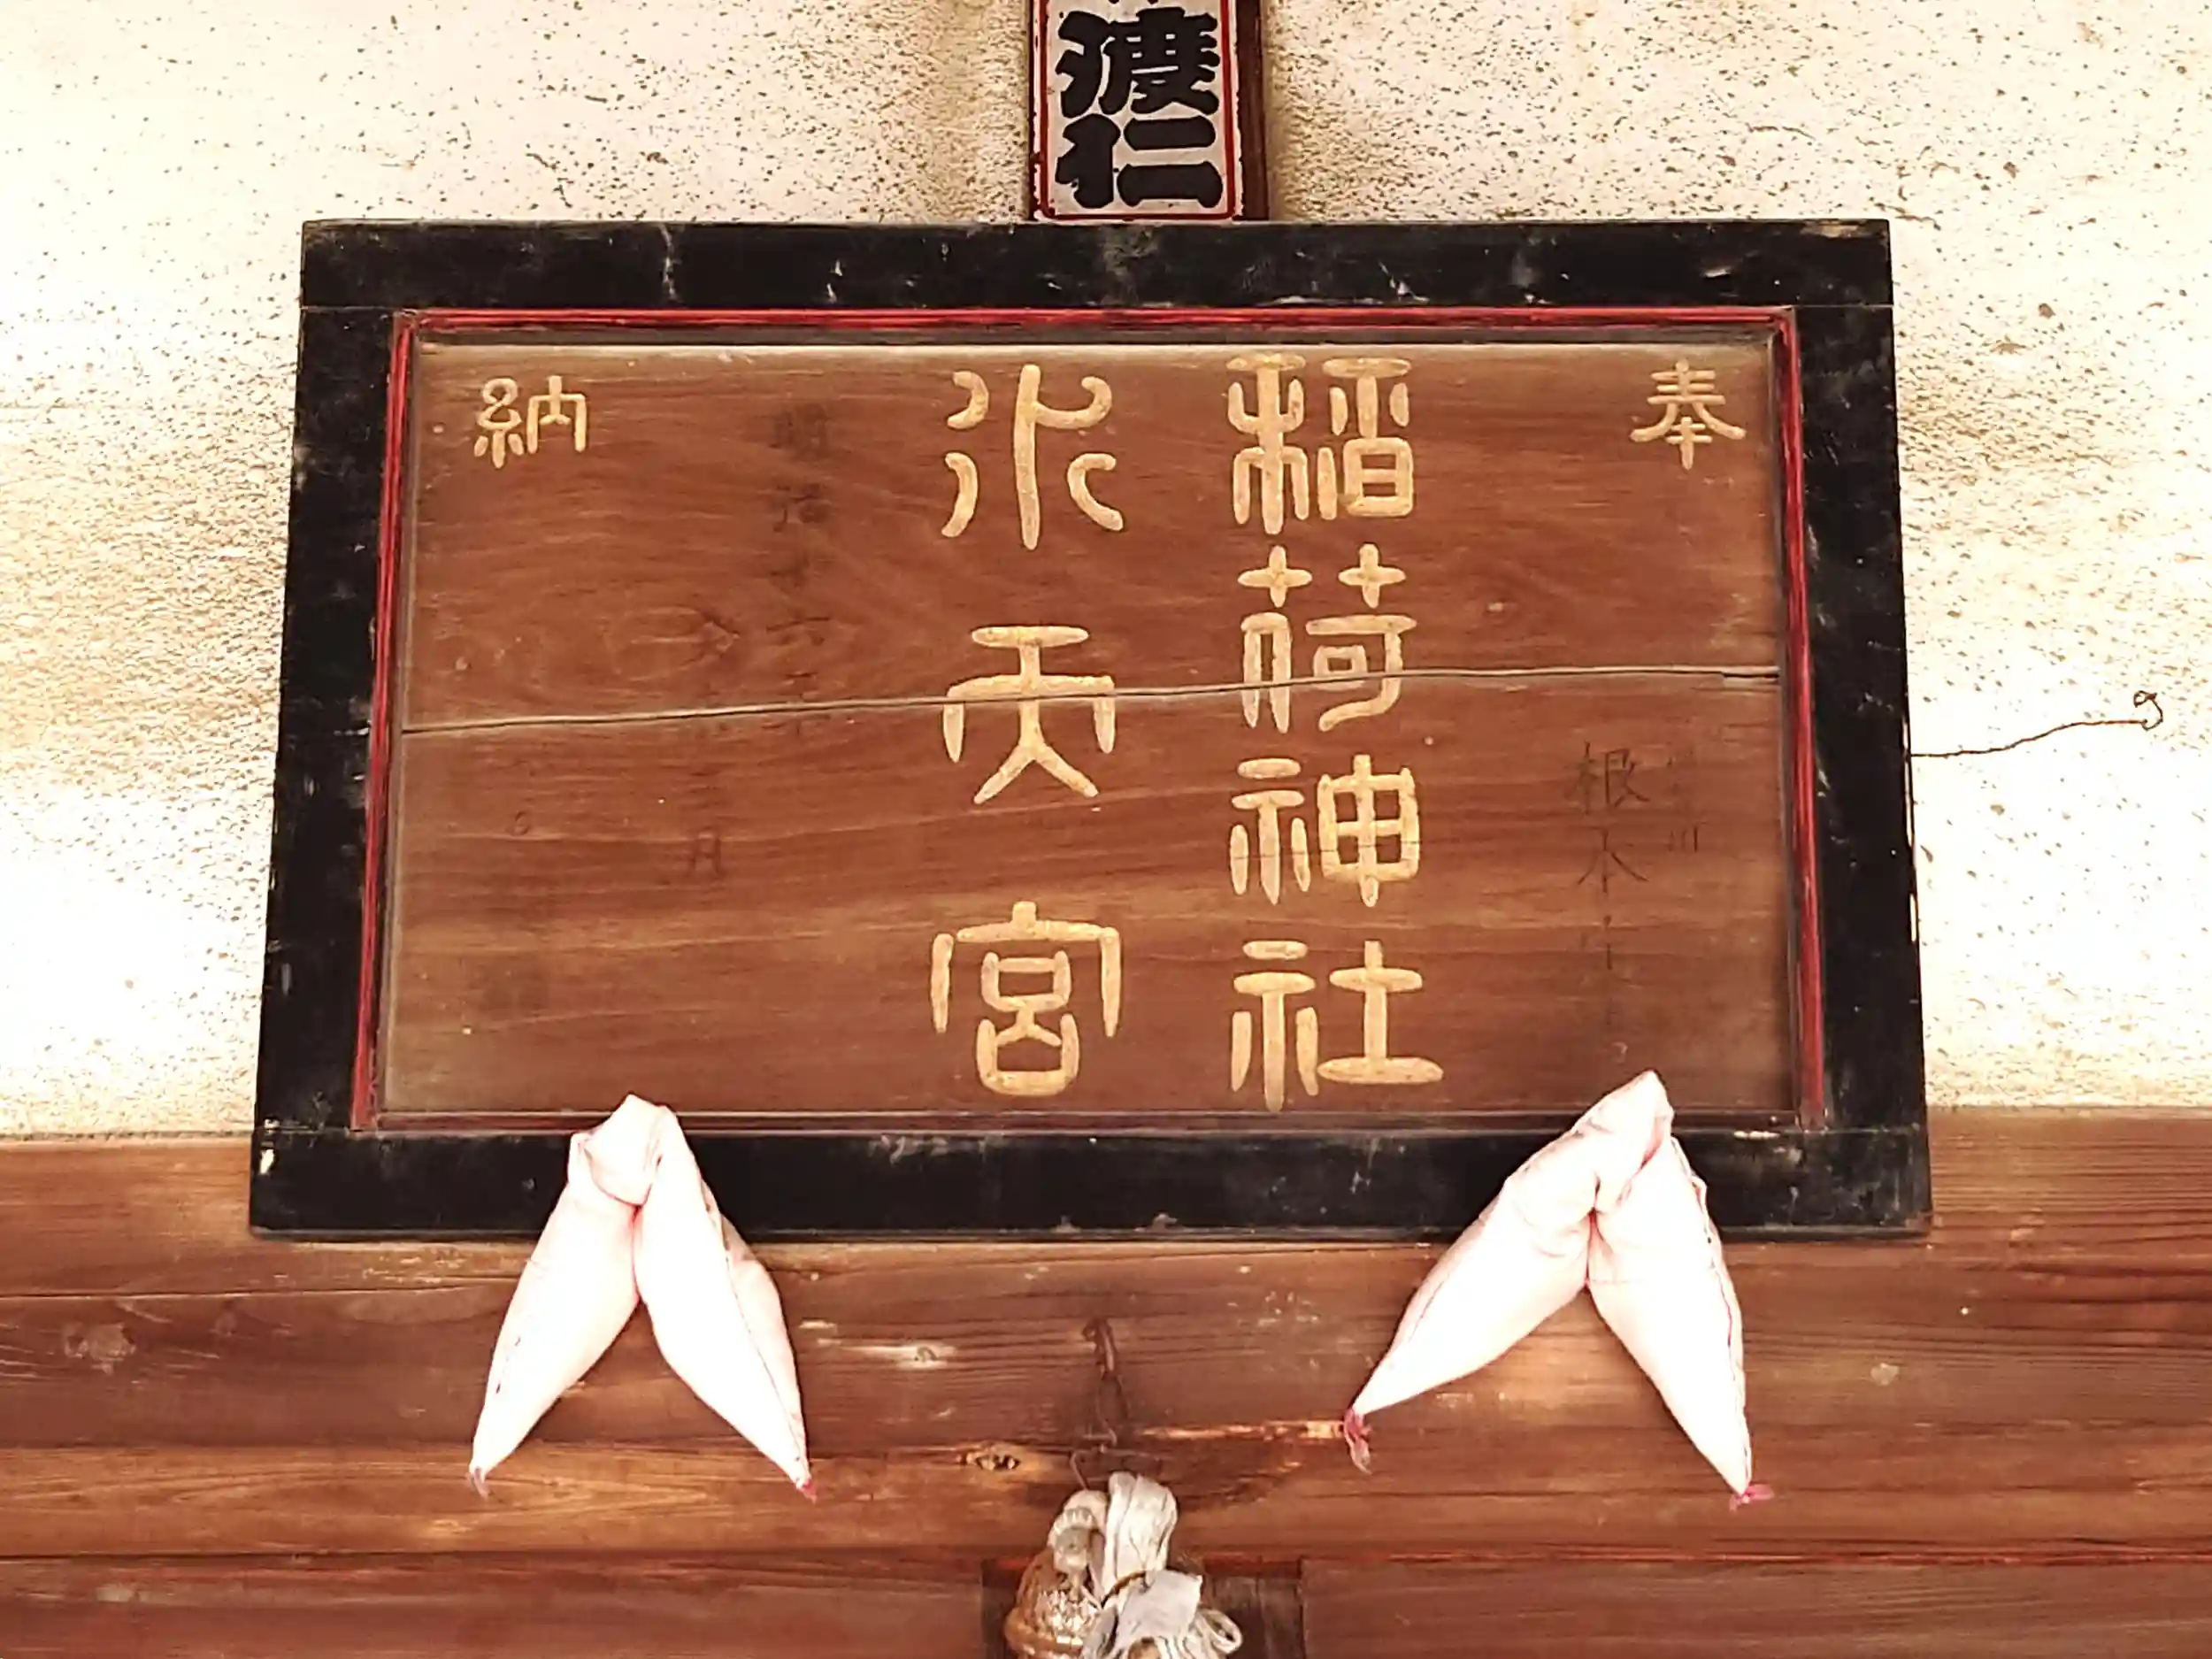 渡仁
奉
根本
稲荷神社
水天宮
明治十六年
月
納